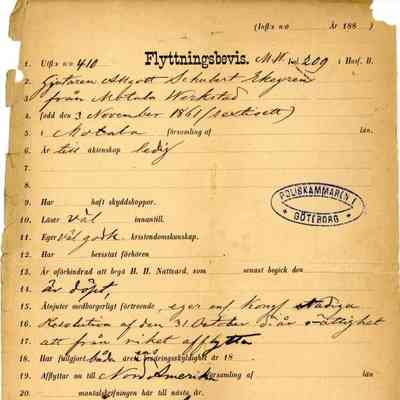 (Inft: n:o År 188 )
Flyttningsbevis.
1. Utft: n:o 410 M.W. fol. 209 i Husf. B.
2. Gjutaren Algott Schubert Ekegren
3. från Motala Werkstad
4. född den 3 November 1861 (sextioett)
5. i Motala församling af län.
6. Är till äktenskap ledig
7.
8.
9. Har haft skyddskoppor.
10. Läser väl innantill.
11. Eger väl godk. kristendomskunskap.
12. Har bevistat förhören
13. Är oförhindrad att begå H. H. Nattvard, som senast begick den
14. är döpt,
15. Åtnjuter medborgerligt förtroende, eger enl. Kongl. Nådiga
16. Resolution af den 31 October d. år rättighet
17. att från riket afflytta
18. Har fullgjort både årens beväringsskyldighet år 18
19. Afflyttar nu till Nord Amerika församling af län.
20. mantalskrifningen här till nästa år.
POLISKAMMAREN I
GÖTEBORG